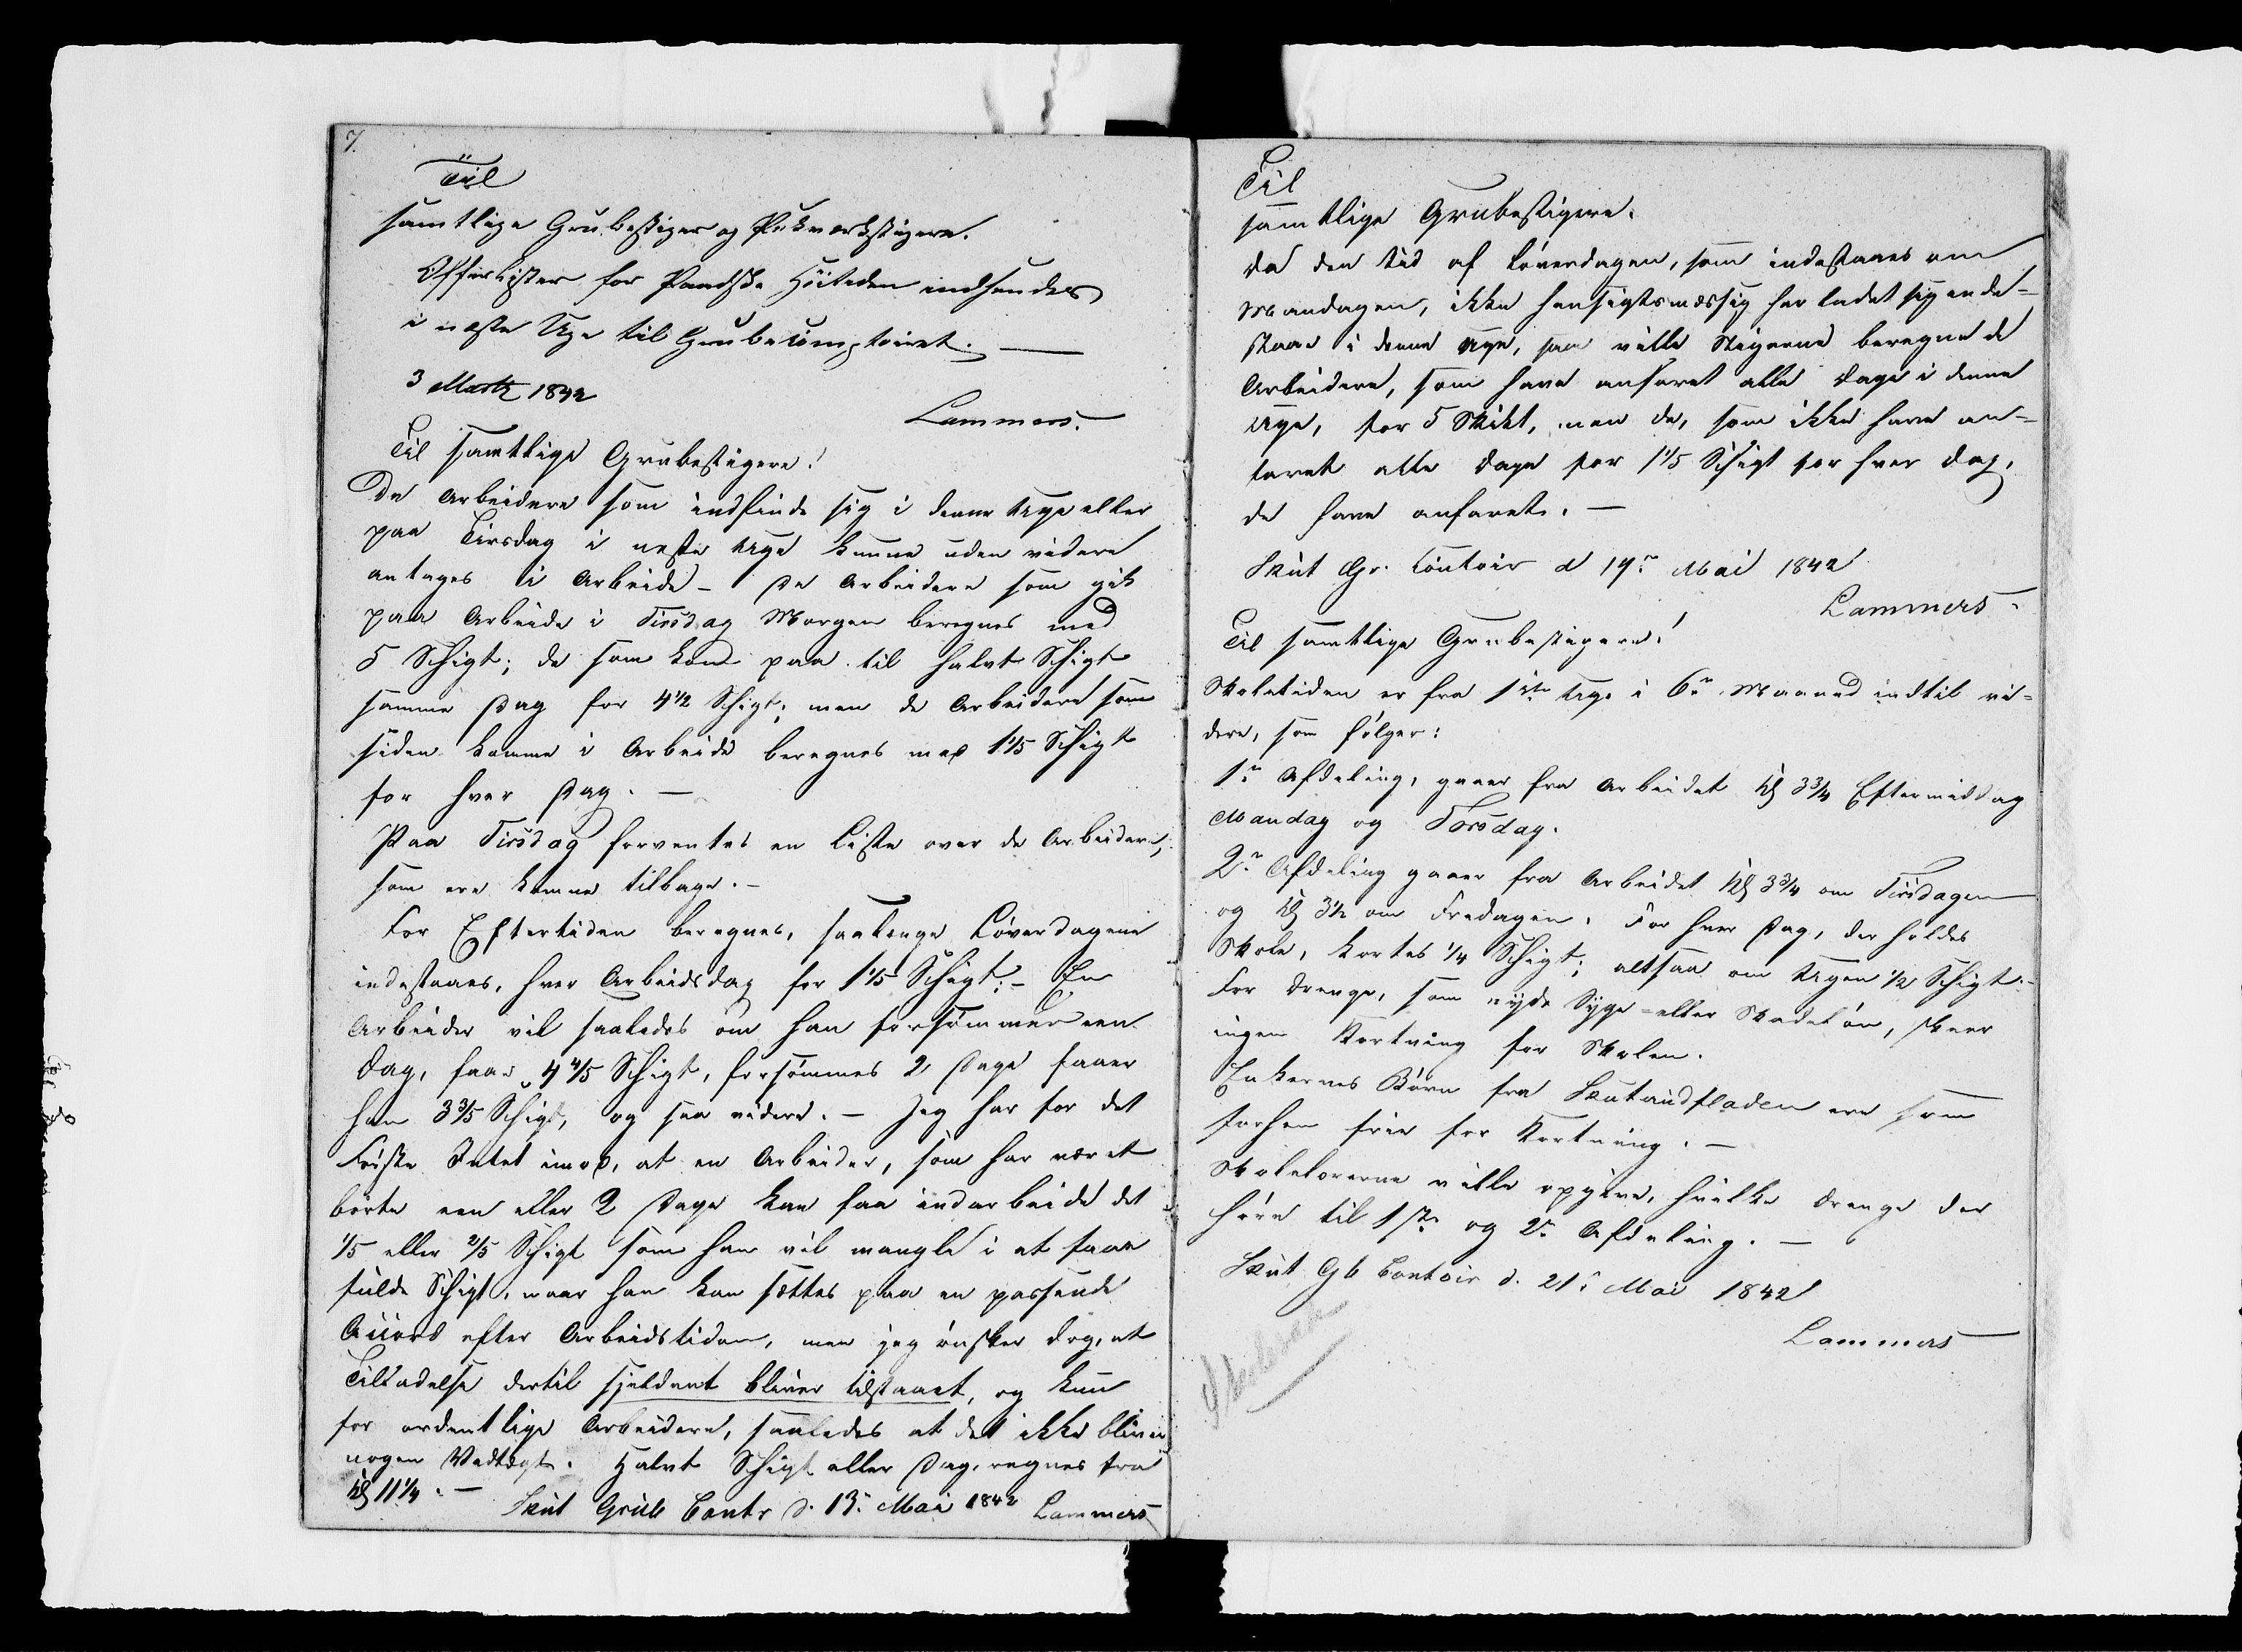 7.
Til
samtlige Grubestiger og Pukværkstigere.
Offerlister for Paaske Høitiden indsendes
i næste Uge til Grubecomptoiret. —
3 Martz 1842
Lammers.
Til samtlige Grubestigere!
De Arbeidere som indfinde sig i denne Uge eller
paa Tirsdag i neste Uge kunne uden videre
antages i Arbeide – De Arbeidere som gik
paa Arbeide i Tirsdag Morgen beregnes med
5 Schigt; de som kom paa til halvt Schigt
samme Dag for 4 1/2 Schigt; men de Arbeidere som
siden komme i Arbeide beregnes med 1 1/5 Schigt
for hver Dag. —
Paa Tirsdag forventes en Liste over de Arbeidere,
som ere komne tilbage. –
For Eftertiden beregnes, saalænge Løverdagene
indestaaes, hver Arbeidsdag for 1 1/5 Schigt; – En
Arbeider vil saaledes om han forsømmer een
Dag, faae 4 4/5 Schigt, forsømmes 2 Dage faaer
han 3 3/5 Schigt, og saa videre. – Jeg har for det
Første Intet imod, at en Arbeider, som har været
borte een eller 2 Dage kan faa indarbeide det
1/5 eller 2/5 Schigt som han vil mangle i at faae
fulde Schigt, naar han kan sættes paa en passende
Accord efter Arbeidstiden, men jeg ønsker dog, at
Tilladelse dertil sjeldent bliver tilstaaet, og kun
for ordentlige Arbeidere, saaledes at det ikke bliver
nogen Vedtægt. Halvt Schigt eller Dag, regnes fra
Kl 11 1/4. –
Skut Grub Contr d. 13. Mai 1842 Lammers
Til
samtlige Grubestigere.
Da den Tid af Løverdagen, som indestaaes om
Mandagen, ikke hensigtsmæssig har ladet sig inde-
staae i denne Uge, saa ville Stigerne beregne de
Arbeidere, som have anfaret alle Dage i denne
Uge, for 5 Skikt, men de, som ikke have an-
faret alle Dage for 1 1/5 Schigt for hver Dag,
de have anfaret. –
Skut Gr. Contoir d 19n Mai 1842
Lammers.
Til samtlige Grubestigere!
Skoletiden er fra 1ste Uge i 6n Maaned indtil vi-
dere, som følger:
1n Afdeling, gaaer fra Arbeidet Kl 3 3/4 Eftermiddag
Mandag og Torsdag.
2n Afdeling gaaer fra Arbeidet Kl 3 3/4 om Tirsdagen
og Kl 3 1/2 om Fredagen. For hver Dag, der holdes
Skole, kortes 1/4 Schigt; altsaa om Ugen 1/2 Schigt. –
For Drenge, som nyde Syge- eller Skadeløn, skeer
ingen Kortning for Skolen.
Enkernes Børn fra Skutaudfladen ere som
forhen frie for Kortning. –
Skolelærerne ville opgive, hvilke Drenge der
høre til 1ste og 2n Afdeling. –
Skut Gb Contoir d. 21. Mai 1842
Lammers